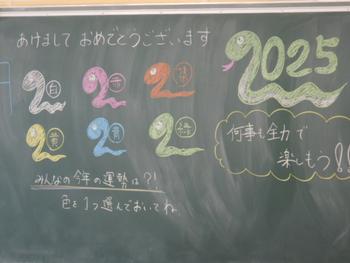 あけまして おめでとうございます
2025
白 赤 橙
黄 青 緑
何事も全力で
楽しもう!!
みんなの今年の運勢は?!
色を1つ選んでおいてね